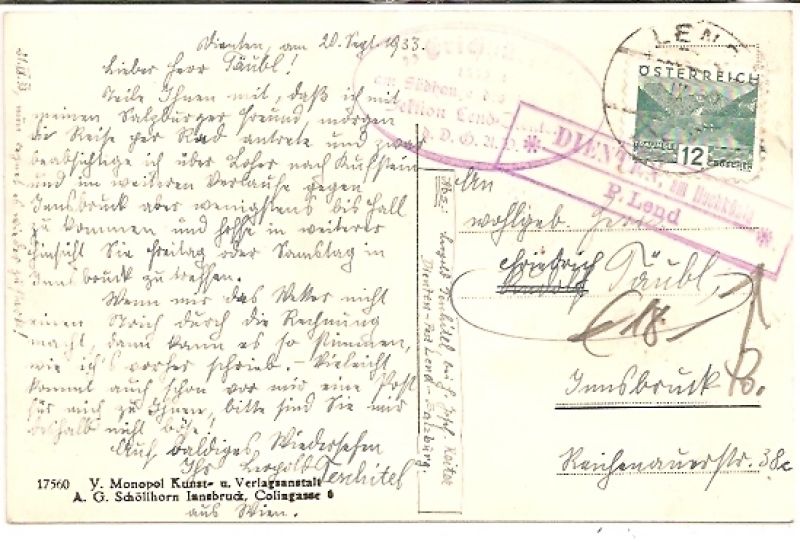 Dienten, am 20. Sept. 1933.
Lieber Herr Täubl!
Teile Ihnen mit, daß ich mit
meinen Salzburger Freund, morgen
die Reise per Rad antrete und zwar
beabsichtige ich über Lofer nach Kufstein
und im weiteren Verlaufe gegen
Innsbruck aber wenigstens bis Hall
zu kommen und hoffe in weiterer
Hinsicht Sie Freitag oder Samstag in
Innsbruck zu treffen.
Wenn mir das Wetter nicht
einen Strich durch die Rechnung
macht, dann kann es so stimmen,
wie ich's vorher schrieb. - Vieleicht
kommt auch schon vor mir eine Post
für mich zu Ihnen, bitte sind Sie mir
deshalb nicht böse!
Auf baldiges Wiedersehen
Ihr Leopold Teschitel
aus Wien.
17560 V. Monopol Kunst- u. Verlagsanstalt
A. G. Schöllhorn Innsbruck, Colingasse
Abs: Leopold Teschitel
Dienten - Post Lend - Salzburg.
LEND
ÖSTERREICH
12 GROSCHEN
am
Sektion Lend-
d. D. Ö. A. V.
DIENTEN, am Hochkönig
P. Lend
An
wohlgeb. Herrn
Friedrich Täubl,
Innsbruck
Reichenauerstr. 38c